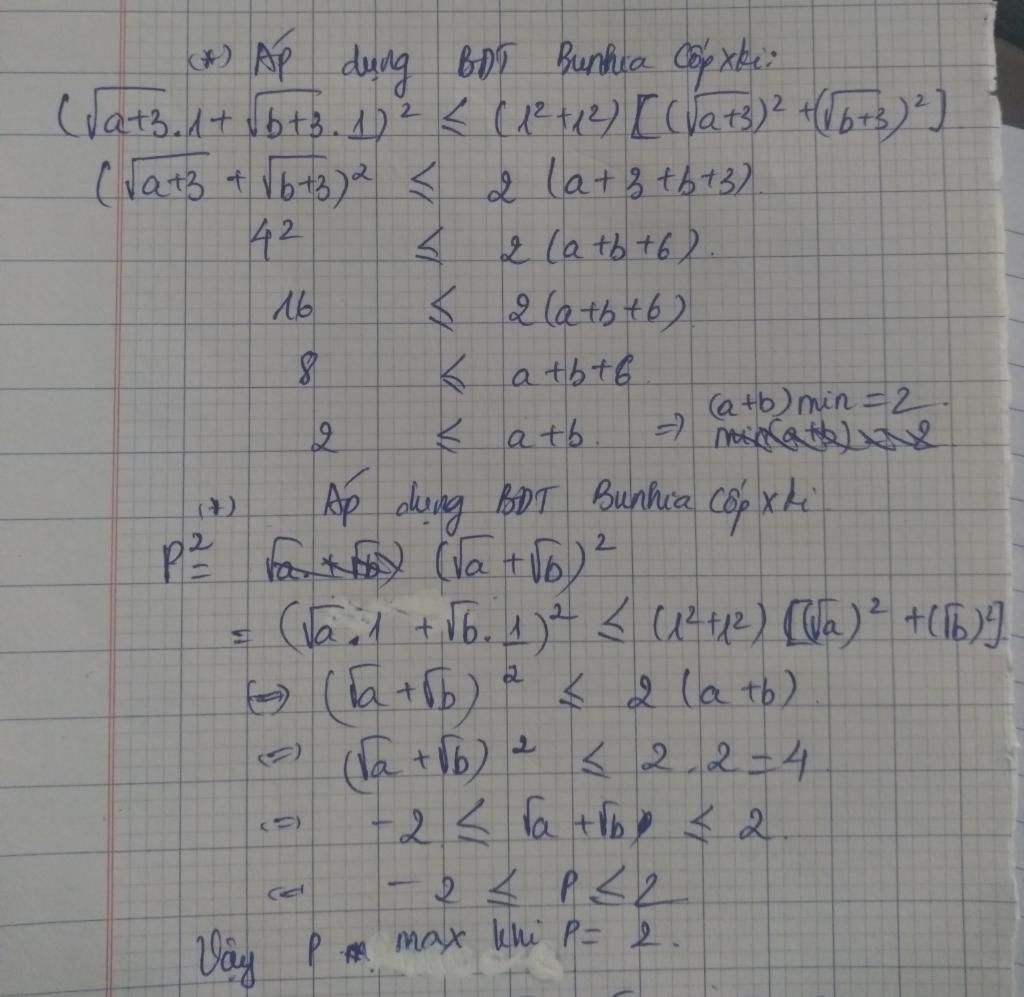 (*) Áp dụng BĐT Bunhia Cốp xki:
(√a+3.1 + √b+3.1)² ≤ (1²+1²) [(√a+3)² + (√b+3)²]
(√a+3 + √b+3)² ≤ 2 (a+3+b+3)
4² ≤ 2 (a+b+6).
16 ≤ 2(a+b+6)
8 ≤ a+b+6
(a+b) min = 2.
2 ≤ a+b. ⇒
(*) Áp dụng BĐT Bunhia Cốp xki
P² = (√a + √b)²
= (√a.1 + √b.1)² ≤ (1²+1²) [(√a)² + (√b)²]
⇔ (√a + √b)² ≤ 2 (a+b).
⇔ (√a + √b)² ≤ 2.2 = 4
⇔ -2 ≤ √a + √b ≤ 2.
⇔ -2 ≤ P ≤ 2
Vậy P max khi P = 2.